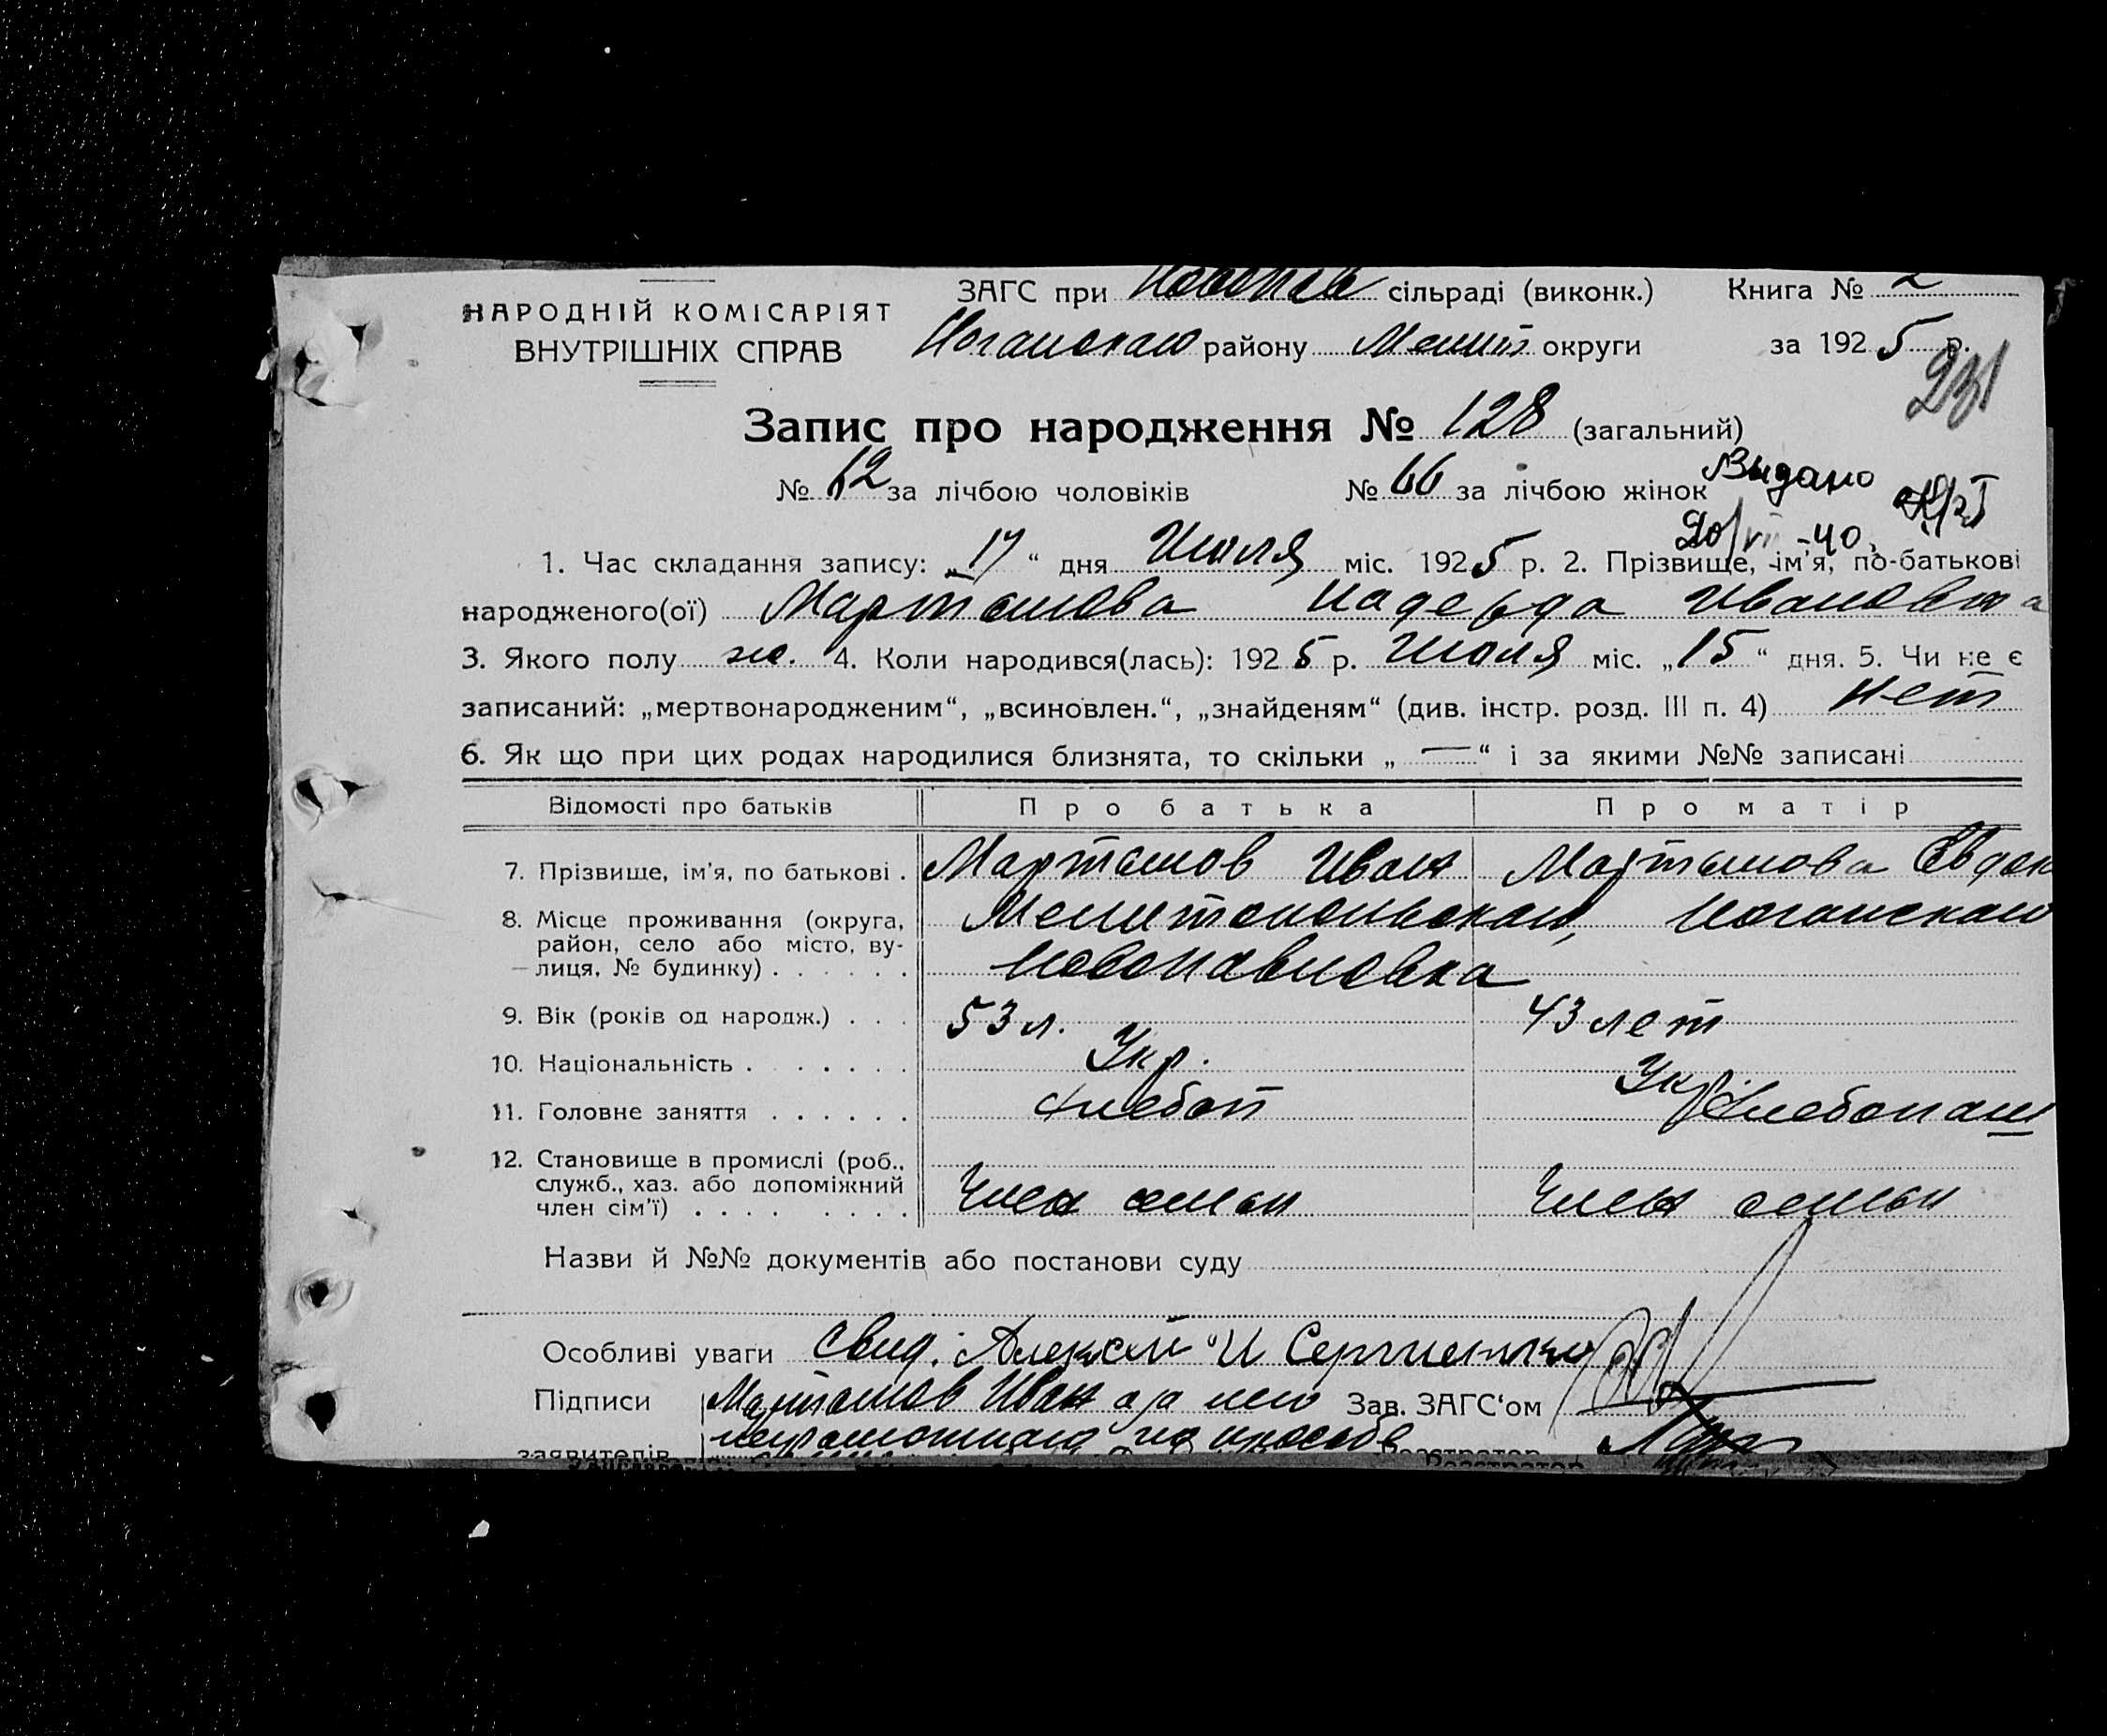 НАРОДНІЙ КОМІСАРІЯТ
ВНУТРІШНІХ СПРАВ
ЗАГС при Новопав сільраді (виконк.) Книга № 2
Ногайскаго району Мелит округи за 1925 р.
231
Запис про народження № 128 (загальний)
№ 62 за лічбою чоловіків № 66 за лічбою жінок Видано
20/VII -40
1. Час складання запису: „17“ дня Июля міс. 1925 р. 2. Прізвище, ім'я, по-батькові
народженого(ої) Марташова Надежда Ивановна
3. Якого полу ж. 4. Коли народився(лась): 1925 р. Июля міс. „15“ дня. 5. Чи не є
записаний: „мертвонародженим“, „всиновлен.“, „знайденям“ (див. інстр. розд. III п. 4) нет
6. Як що при цих родах народилися близнята, то скільки „—“ і за якими №№ записані
Відомості про батьків Про батька Про матір
7. Прізвище, ім'я, по батькові . Марташов Иван Марташова Евдок
8. Місце проживання (округа, Мелитопольскаго, Ногайскаго
район, село або місто, ву-
лиця, № будинку) . . . . . . Новопавловка
9. Вік (років од народж.) . . . 53 л. 43 лет
10. Національність . . . . . . . Укр. Укр.
11. Головне заняття . . . . . . Хлебоп Хлебопаш
12. Становище в промислі (роб.,
служб., хаз. або допоміжний
член сім'ї) . . . . . . . . Член семьи Член семьи
Назви й №№ документів або постанови суду
Особливі уваги Свид. Алексей И Сергиенко
Підписи Марташов Иван а за него Зав. ЗАГС'ом
заявителів неграмотнаго по просьбе Реєстратор